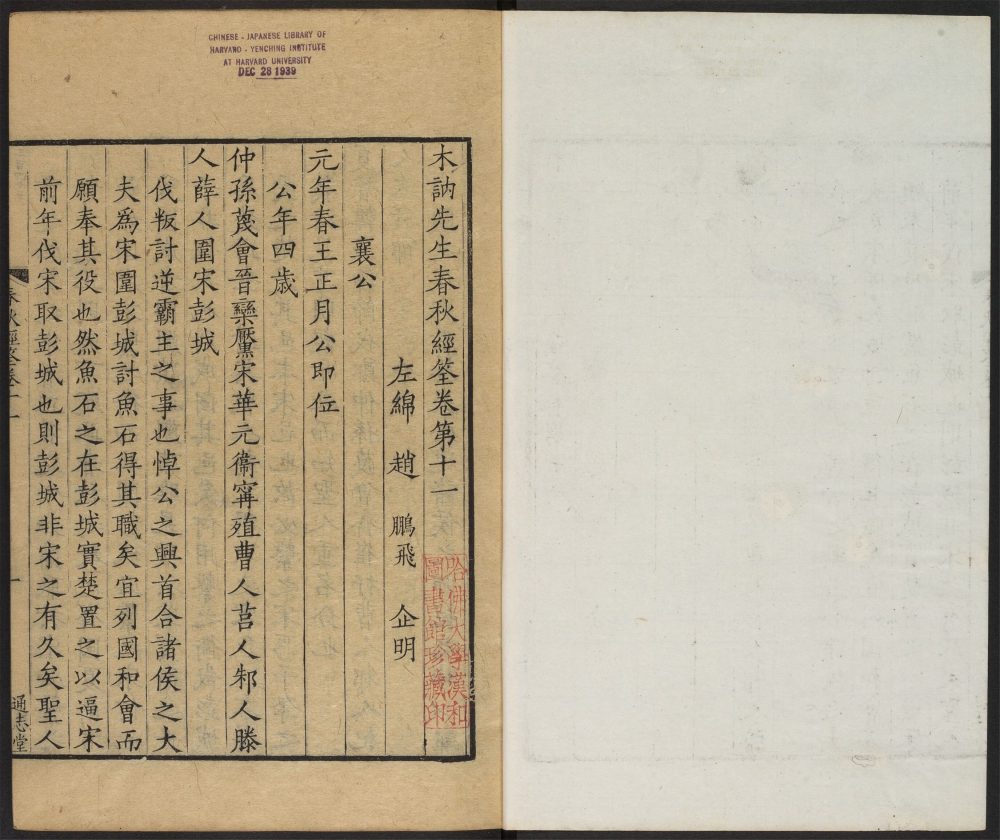 CHINESE - JAPANESE LIBRARY OF
HARVARD - YENCHING INSTITUTE
AT HARVARD UNIVERSITY
DEC 28 1939
木訥先生春秋經筌卷第十一
左綿 趙 鵬飛 企明
襄公
元年春王正月公即位
公年四歲
仲孫蔑會晉欒黶宋華元衞甯殖曹人莒人邾人滕
人薛人圍宋彭城
伐叛討逆霸主之事也悼公之興首合諸侯之大
夫爲宋圍彭城討魚石得其職矣宜列國和會而
願奉其役也然魚石之在彭城實楚置之以逼宋
前年伐宋取彭城也則彭城非宋之有久矣聖人
春秋經筌卷十一
一
通志堂
哈佛大學漢和
圖書館珍藏印